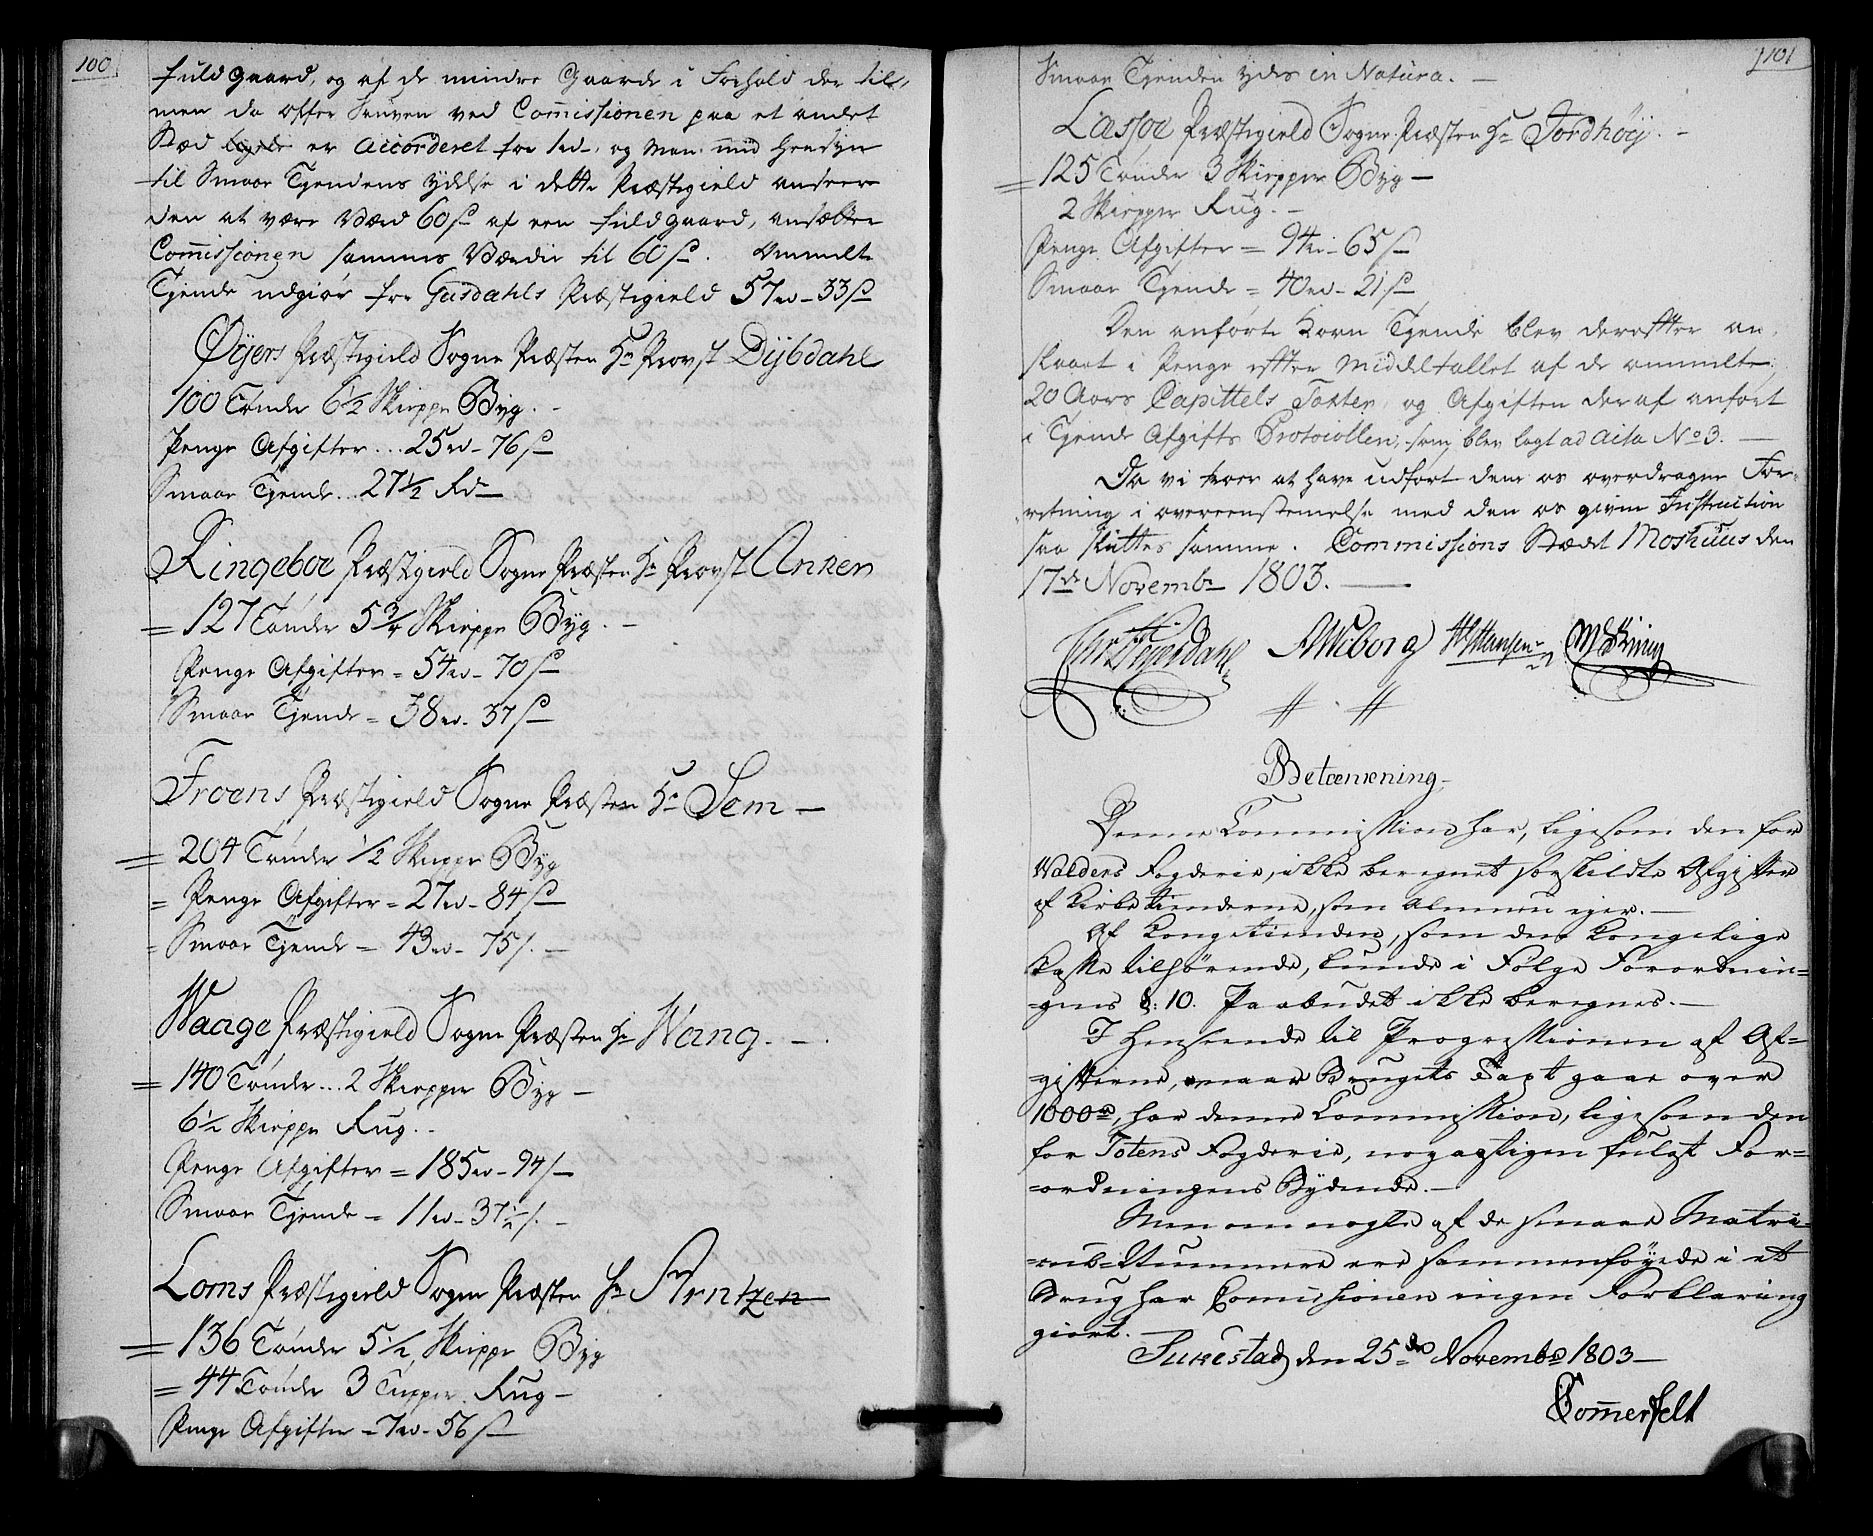 100
fuld gaard, og af de mindre Gaarde i Forhold der til,
men da offer Skuven ved Commissionen paa et andet
Stæd er Accorderet for 1rd. og Man med Hensyn
til Smaae Tjendens ydelse i dette Præstegield anseer
den at være Værd 60 s af een fuld gaard, ansætter
Commissionen sammes Værdie til 60 s. Ommelte
Tjende udgiør for Gusdahls Præstegield 57 rd - 33 s
Øyers Præstegield Sogne Præsten Hr Provst Dybdahl
100 Tønder 6 1/2 Skieppe Byg. -
Penge Afgifter ... 25 rd - 76 s
Smaae Tjende ... 27 1/2 Rd
Ringeboe Præstegield Sogne Præsten Hr Provst Anker
= 127 Tønder 5 3/4 Skieppe Byg. -
Penge Afgifter = 54 rd - 70 s
Smaae Tjende = 38 rd - 37 s
Froens Præstegield Sogne Præsten Hr Sem -
= 204 Tønder 1/2 Skieppe Byg
= Penge Afgifter = 27 rd - 84 s
= Smaae Tjende = 43 rd - 75 s. -
Waage Præstegield Sogne Præsten Hr Wang. -
= 140 Tønder ... 2 Skiepper Byg -
6 1/2 Skieppe Rug. -
Penge Afgifter = 185 rd - 94 s
Smaae Tjende = 11 rd - 37 1/2 s. -
Loms Præstegield Sogne Præsten Hr Arntzen
= 136 Tønder 5 1/2 Skieppe Byg
= 44 Tønder 3 Rug -
Penge Afgifter = 7 rd - 56 s
101
Smaae Tjenden ydes in Natura. -
Lassoe Præstegield Sogne Præsten Hr Jordhøy. -
= 125 Tønder 3 Skiepper Byg -
2 Skiepper Rug. -
Penge Afgifter = 94 rd - 65 s
Smaae Tjende = 40 rd - 21 s
Den anførte Korn Tjende blev derefter an-
slaaet i Penge efter Middeltallet af de ommelte
20 Aars Capittels Taxter, og Afgiften deraf anført
i Tjende Afgifts Protocollen, som blev lagt ad Acta No 3. -
Da vi troer at have udført den os overdragne For-
retning i overeensstemmelse med den os given Instruction
saa sluttes samme. Commissions Stædet Moshuus den
17de Novembr 1803. -
Chr Pharo Dahl A Wiborg
Betænkning.
Denne Commission har, ligesom den for
Valders Fogderie, ikke beregnet særskildte Afgifter
af Kirketienderne, som Almuen eger. -
Af Kongetienden, som den Kongelige
Kasse tilhørende, kunde i Følge Forordnin-
-gens §: 10. Paabudet ikke beregnes. -
I Henseende til Progressionen af Af-
-gifterne, naar Brugets Taxt gaar over
1000 rd, har denne Commission, ligesom den
for Totens Fogderie, nøgagtigen fulgt For-
-ordningens Bydende. -
Men om nogle af de smaae Matri-
-cul-Nummere ere sammenføyede i et
Brug har Comissionen ingen Forklaring
giort. -
den 25de Novembr 1803 -
Sommerfelt